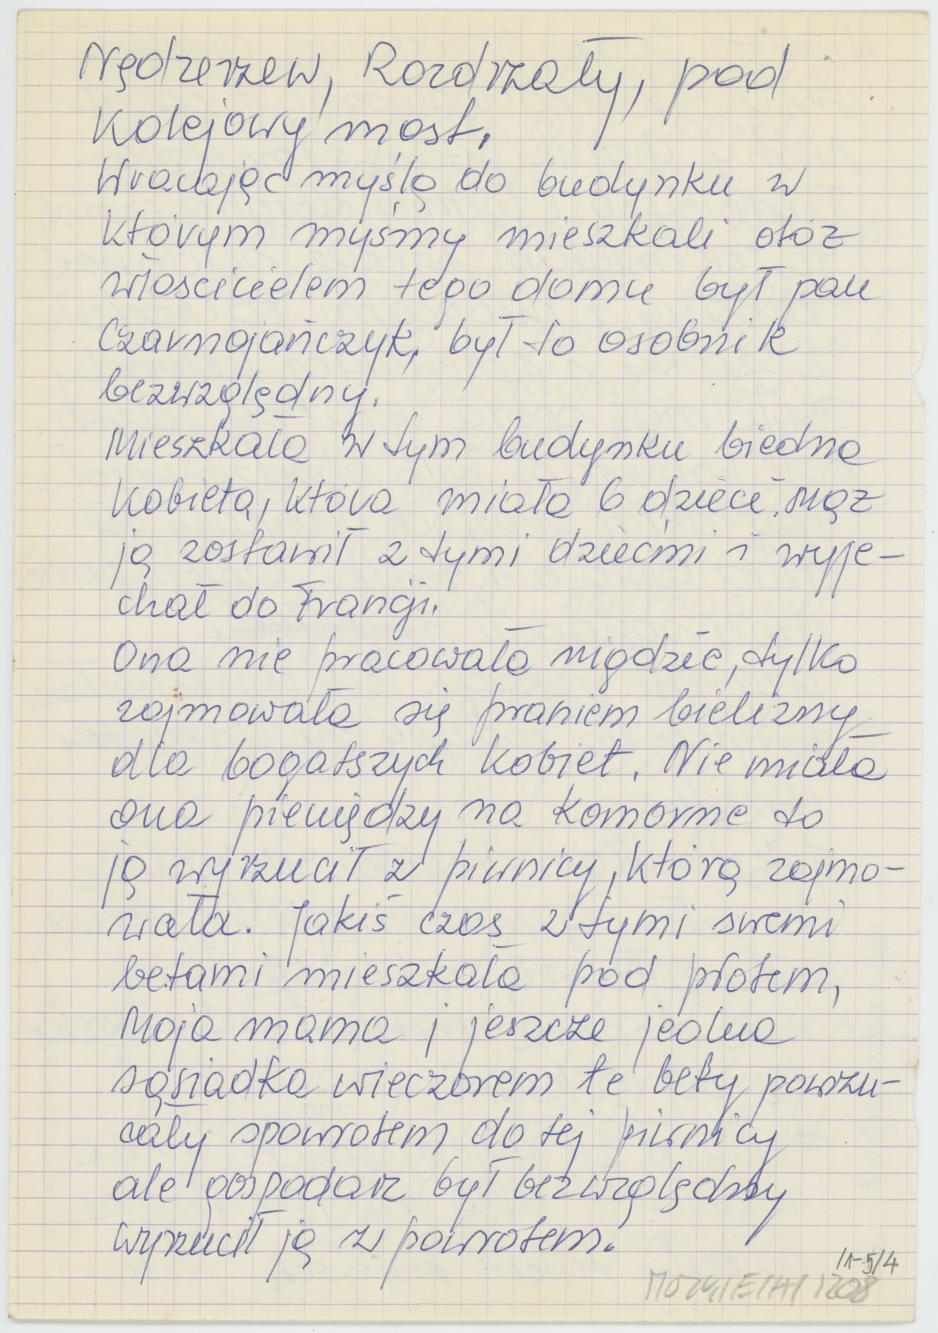 Nędzerzew, Rozdrzały, pod
Kolejowy most.
Wracając myślą do budynku w
którym myśmy mieszkali otóż
włoscicielem tego domu był pan
Czarnojańczyk, był to osobnik
bezwzględny.
Mieszkała w tym budynku biedna
Kobieta, która miała 6 dzieci. Mąż
ją zostawił z tymi dziećmi i wyje-
chał do Francji.
Ona nie pracowała nigdzie, tylko
zajmowała się praniem bielizny
dla bogatszych kobiet. Nie miała
ona pieniędzy na komorne to
ją wyrzucił z piwnicy, którą zajmo-
wała. Jakiś czas z tymi swemi
betami mieszkała pod płotem,
Moja mama i jeszcze jedna
sąsiadka wieczorem te bety powrzu-
cały spowrotem do tej piwnicy
ale gospodarz był bezwzględny
wyrzucił ją z powrotem.
/1-5/4